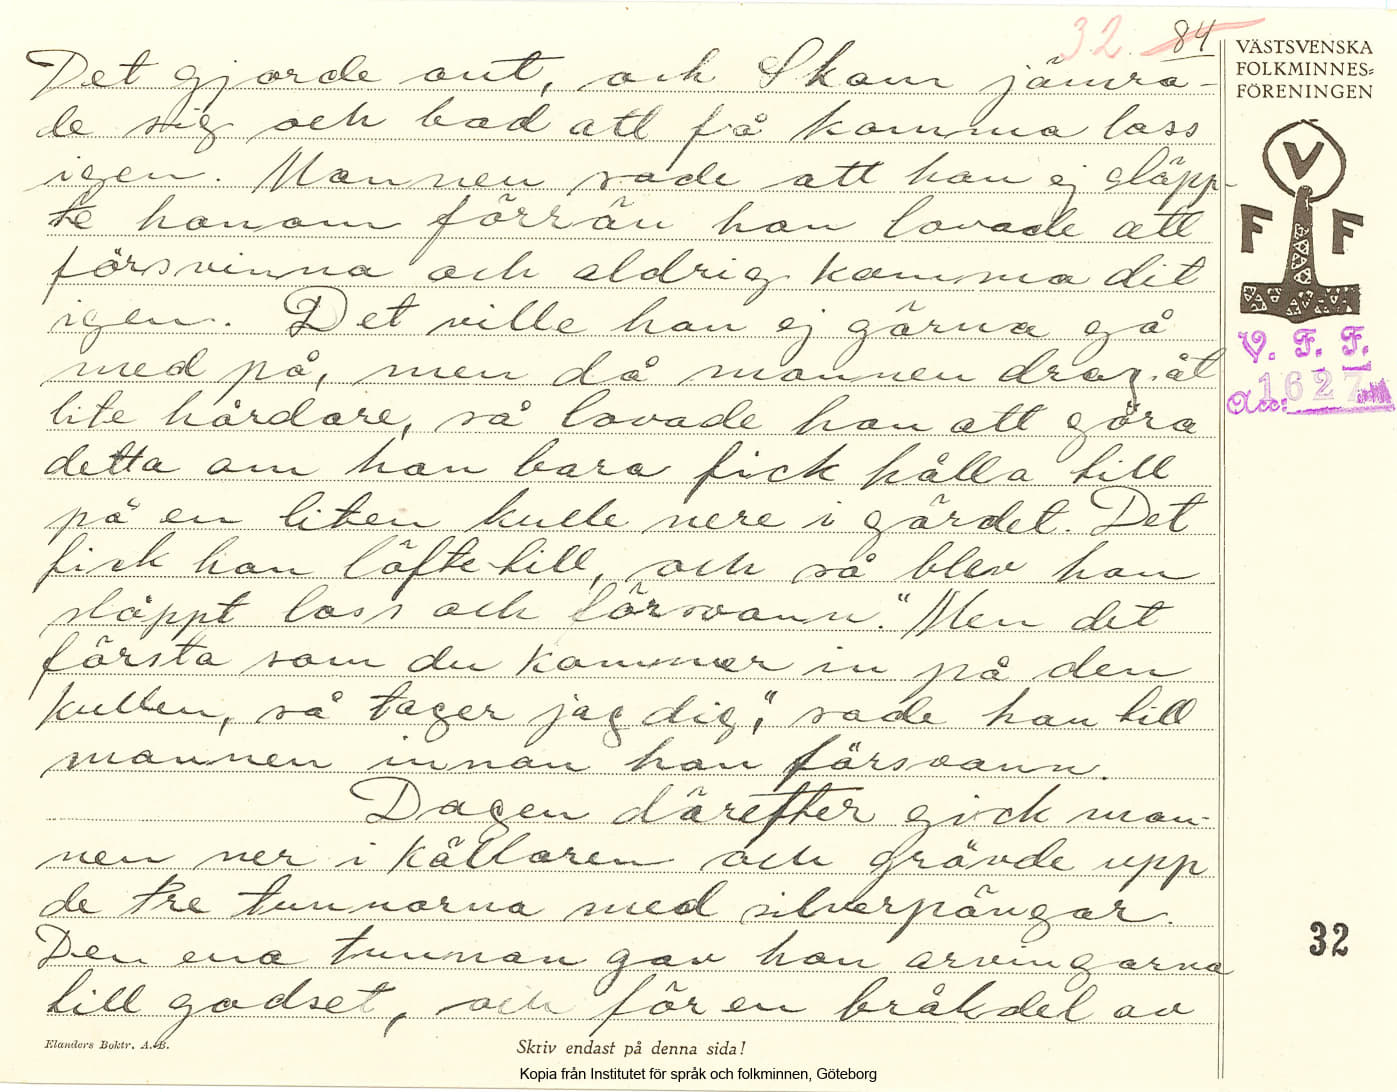 32. 84
VÄSTSVENSKA
FOLKMINNES=
FÖRENINGEN
V
F F
V. F. F.
Acc: 1627
Det gjorde ont, och Skam jämra-
de sig och bad att få komma loss
igen. Mannen sade att han ej släpp-
te honom förrän han lovade att
försvinna och aldrig komma dit
igen. Det ville han ej gärna gå
med på, men då mannen drog åt
lite hårdare, så lovade han att göra
detta om han bara fick hålla till
på en liten kulle nere i gärdet. Det
fick han löfte till, och så blev han
släppt loss och försvann. "Men det
första som du kommer in på den
kullen, så tager jag dig", sade han till
mannen innan han försvann.
Dagen därefter gick man-
nen ner i källaren och grävde upp
de tre tunnorna med silverpängar.
Den ena tunnan gav han arvingarna
till godset, och för en bråkdel av
32
Elanders Boktr. A.-B.
Skriv endast på denna sida!
Kopia från Institutet för språk och folkminnen, Göteborg